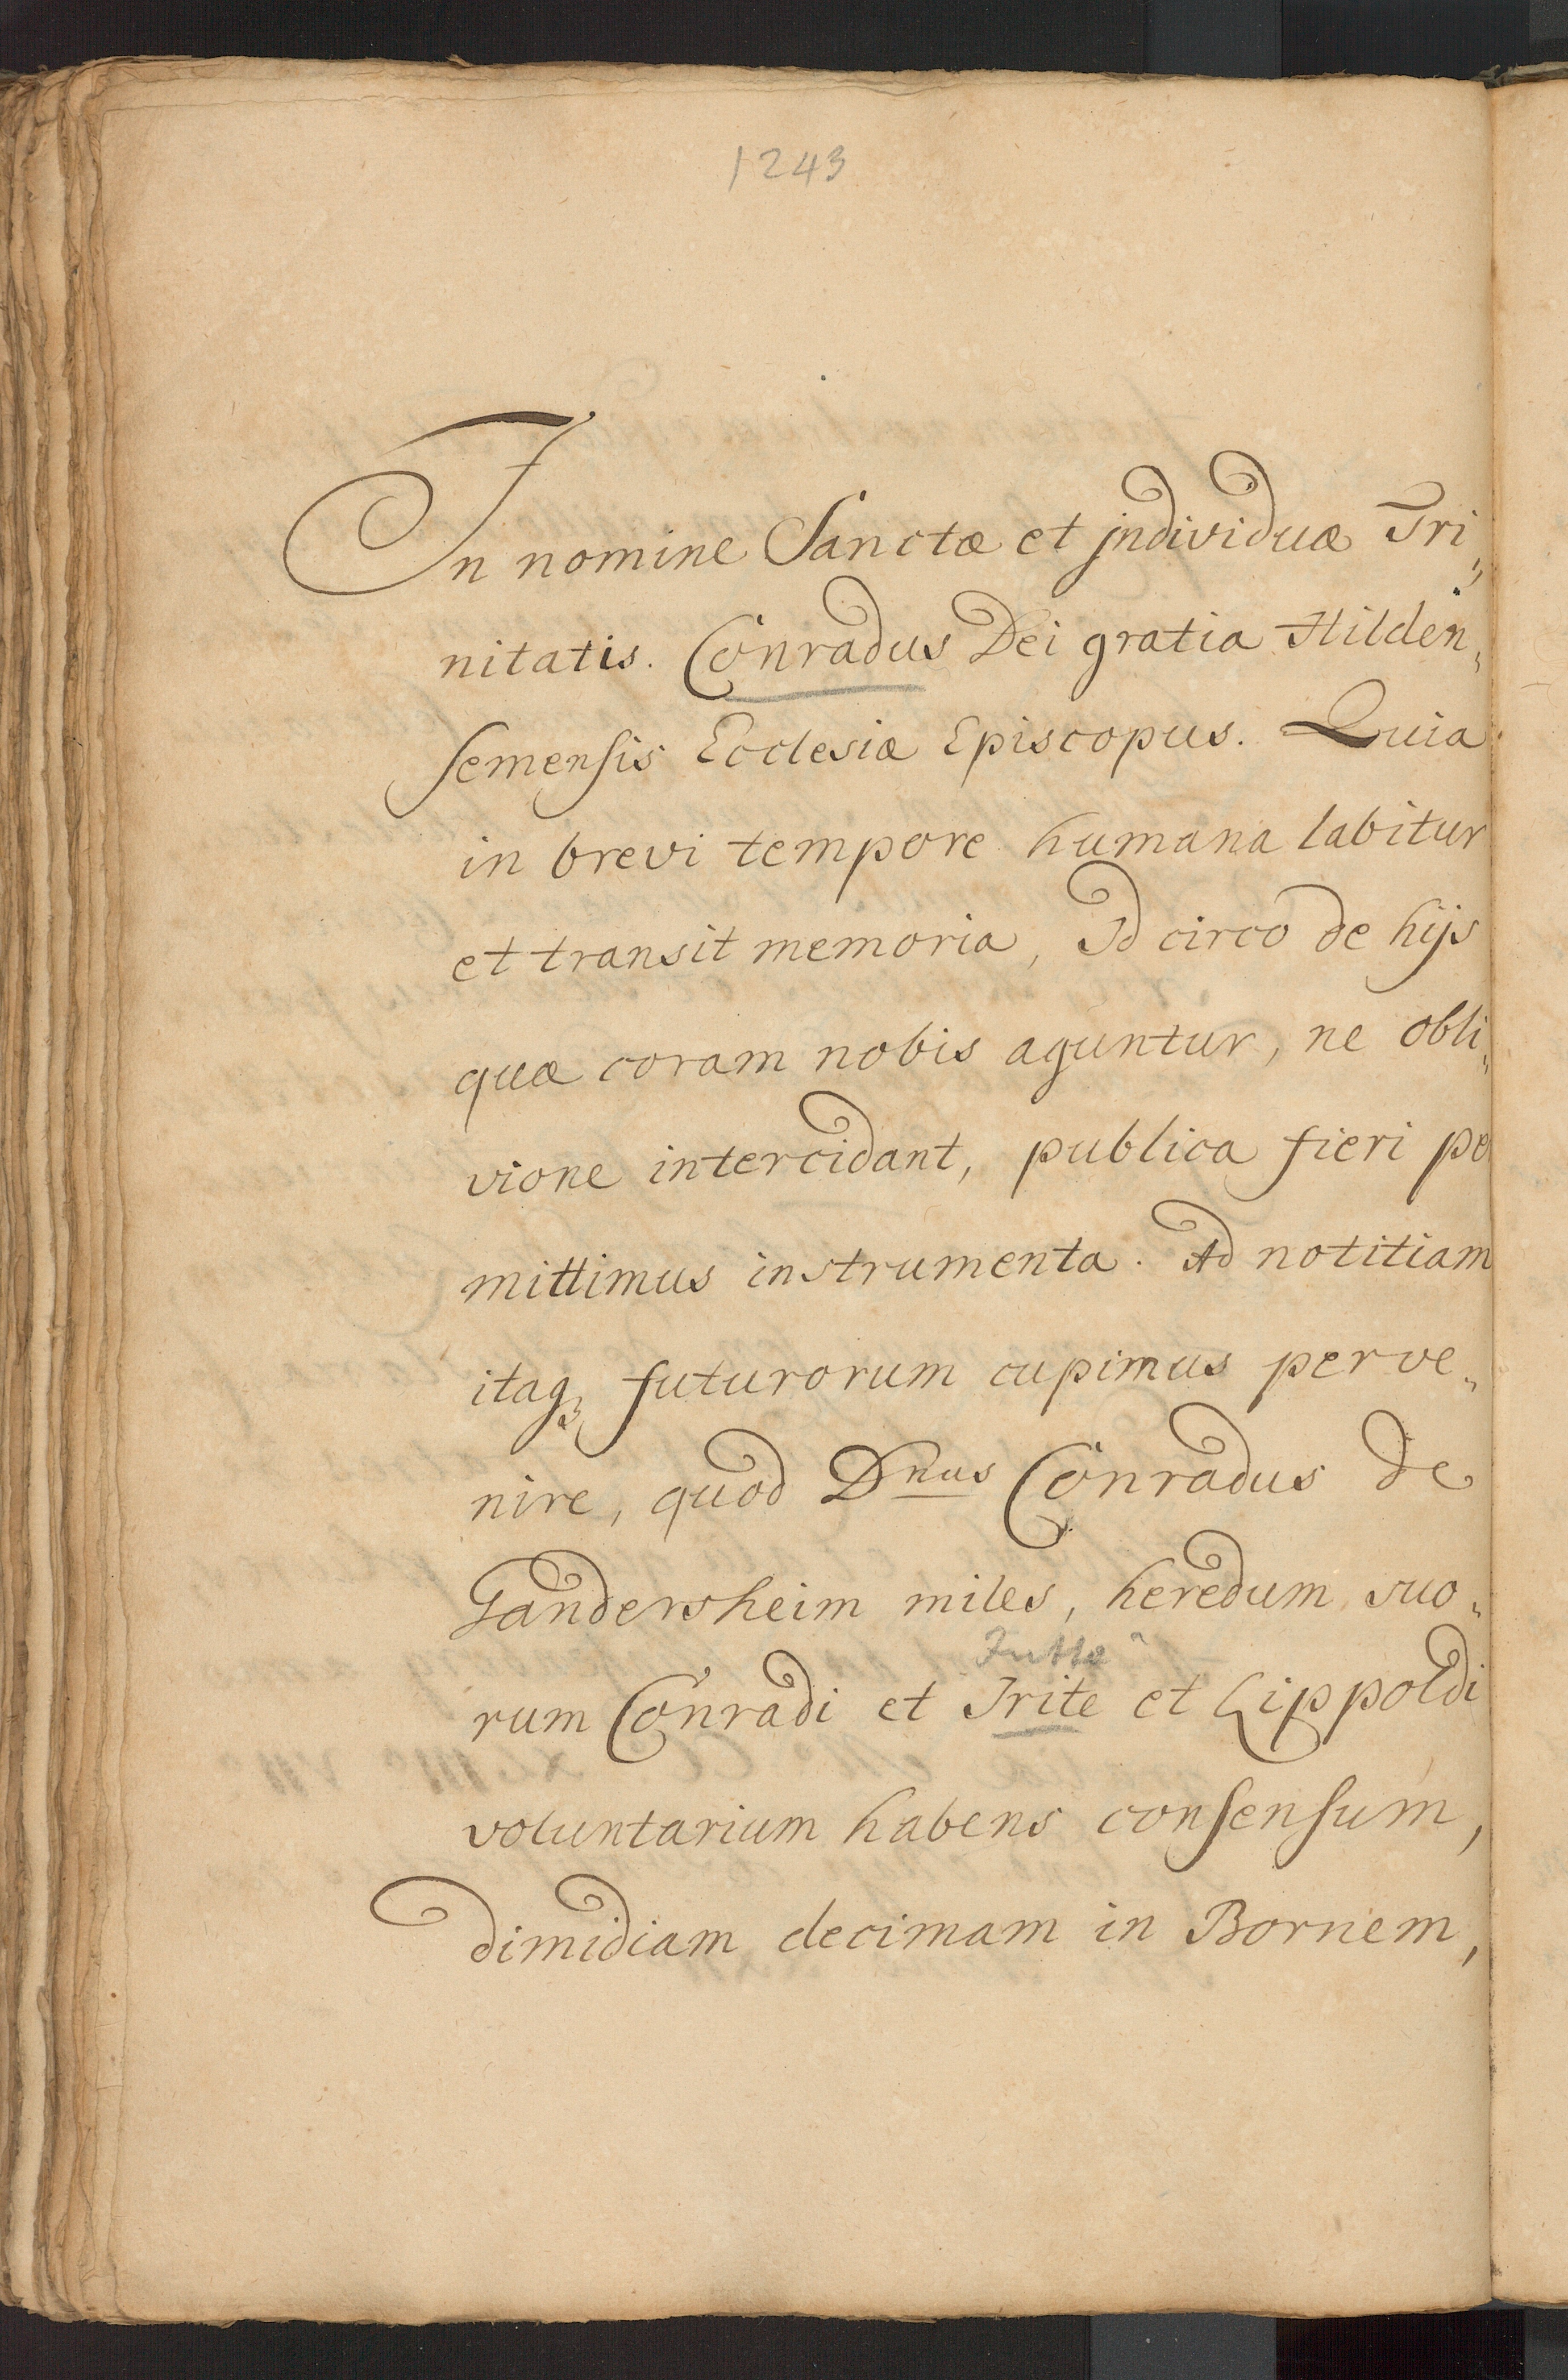 1243
In nomine Sanctæ et jndividuæ Tri„
nitatis. Conradus Dei gratia Hilden„
semensis Ecclesiæ Episcopus. Quia
in brevi tempore humana labitur
et transit memoria, Id circo de hijs
quæ coram nobis aguntur, ne obli„
vione intercidant, publica fieri pe
mittimus instrumenta. Ad notitiam
itaq; futurorum cupimus perve„
nire, quod Dnus Conradus de
Gandersheim miles, heredum suo„
Jutte
rum Conradi et Irite et Lippoldi
voluntarium habens consensum,
dimidiam decimam in Bornem,